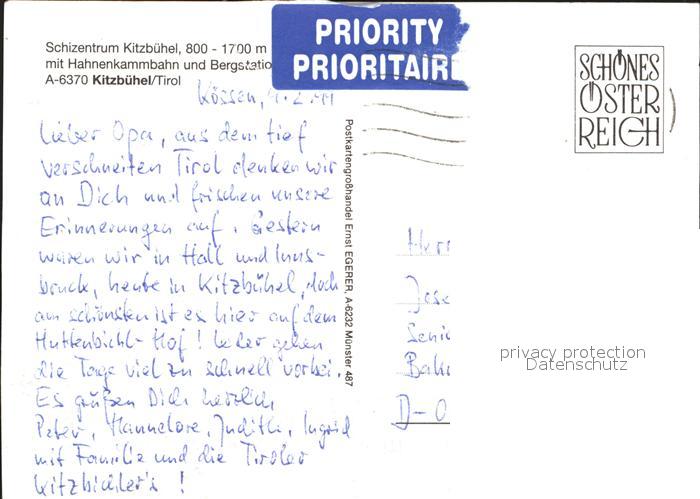 PRIORITY
PRIORITAIR
Schizentrum Kitzbühel, 800 - 1700 m
mit Hahnenkammbahn und Bergstatio
A-6370 Kitzbühel/Tirol
SCHÖNES
ÖSTER
REICH
Kössen,
Lieber Opa, aus dem tief
verschneiten Tirol denken wir
an Dich und frischen unsere
Erinnerungen auf. Gestern
waren wir in Hall und Inns-
bruck, heute in Kitzbühel, doch
am schönsten ist es hier auf dem
Huttenbichl-Hof! Leider gehen
die Tage viel zu schnell vorbei.
Es grüßen Dich herzlich,
Peter, Hannelore, Judith, Ingrid
mit Familie und die Tiroler
Kitzbichler's!
Postkartengroßhandel Ernst EGERER, A-6232 Münster 487
Herr
Jose
Senio
D-0
privacy protection
Datenschutz